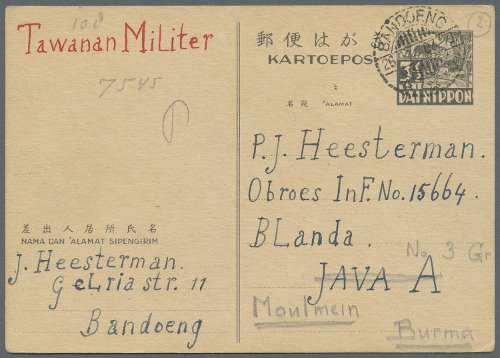 108
2
Tawanan MiLiter
7545
郵便はがき
KARTOEPOS
BANDOENG
3½
DAI NIPPON
名宛 'ALAMAT
P.J. Heesterman.
Obroes Inf. No. 15664.
BLanda.
No 3 Gr
JAVA A
Moulmein
Burma
差出人居所氏名
NAMA DAN 'ALAMAT SIPENGIRIM
J. Heesterman.
GeLria str. 11
Bandoeng